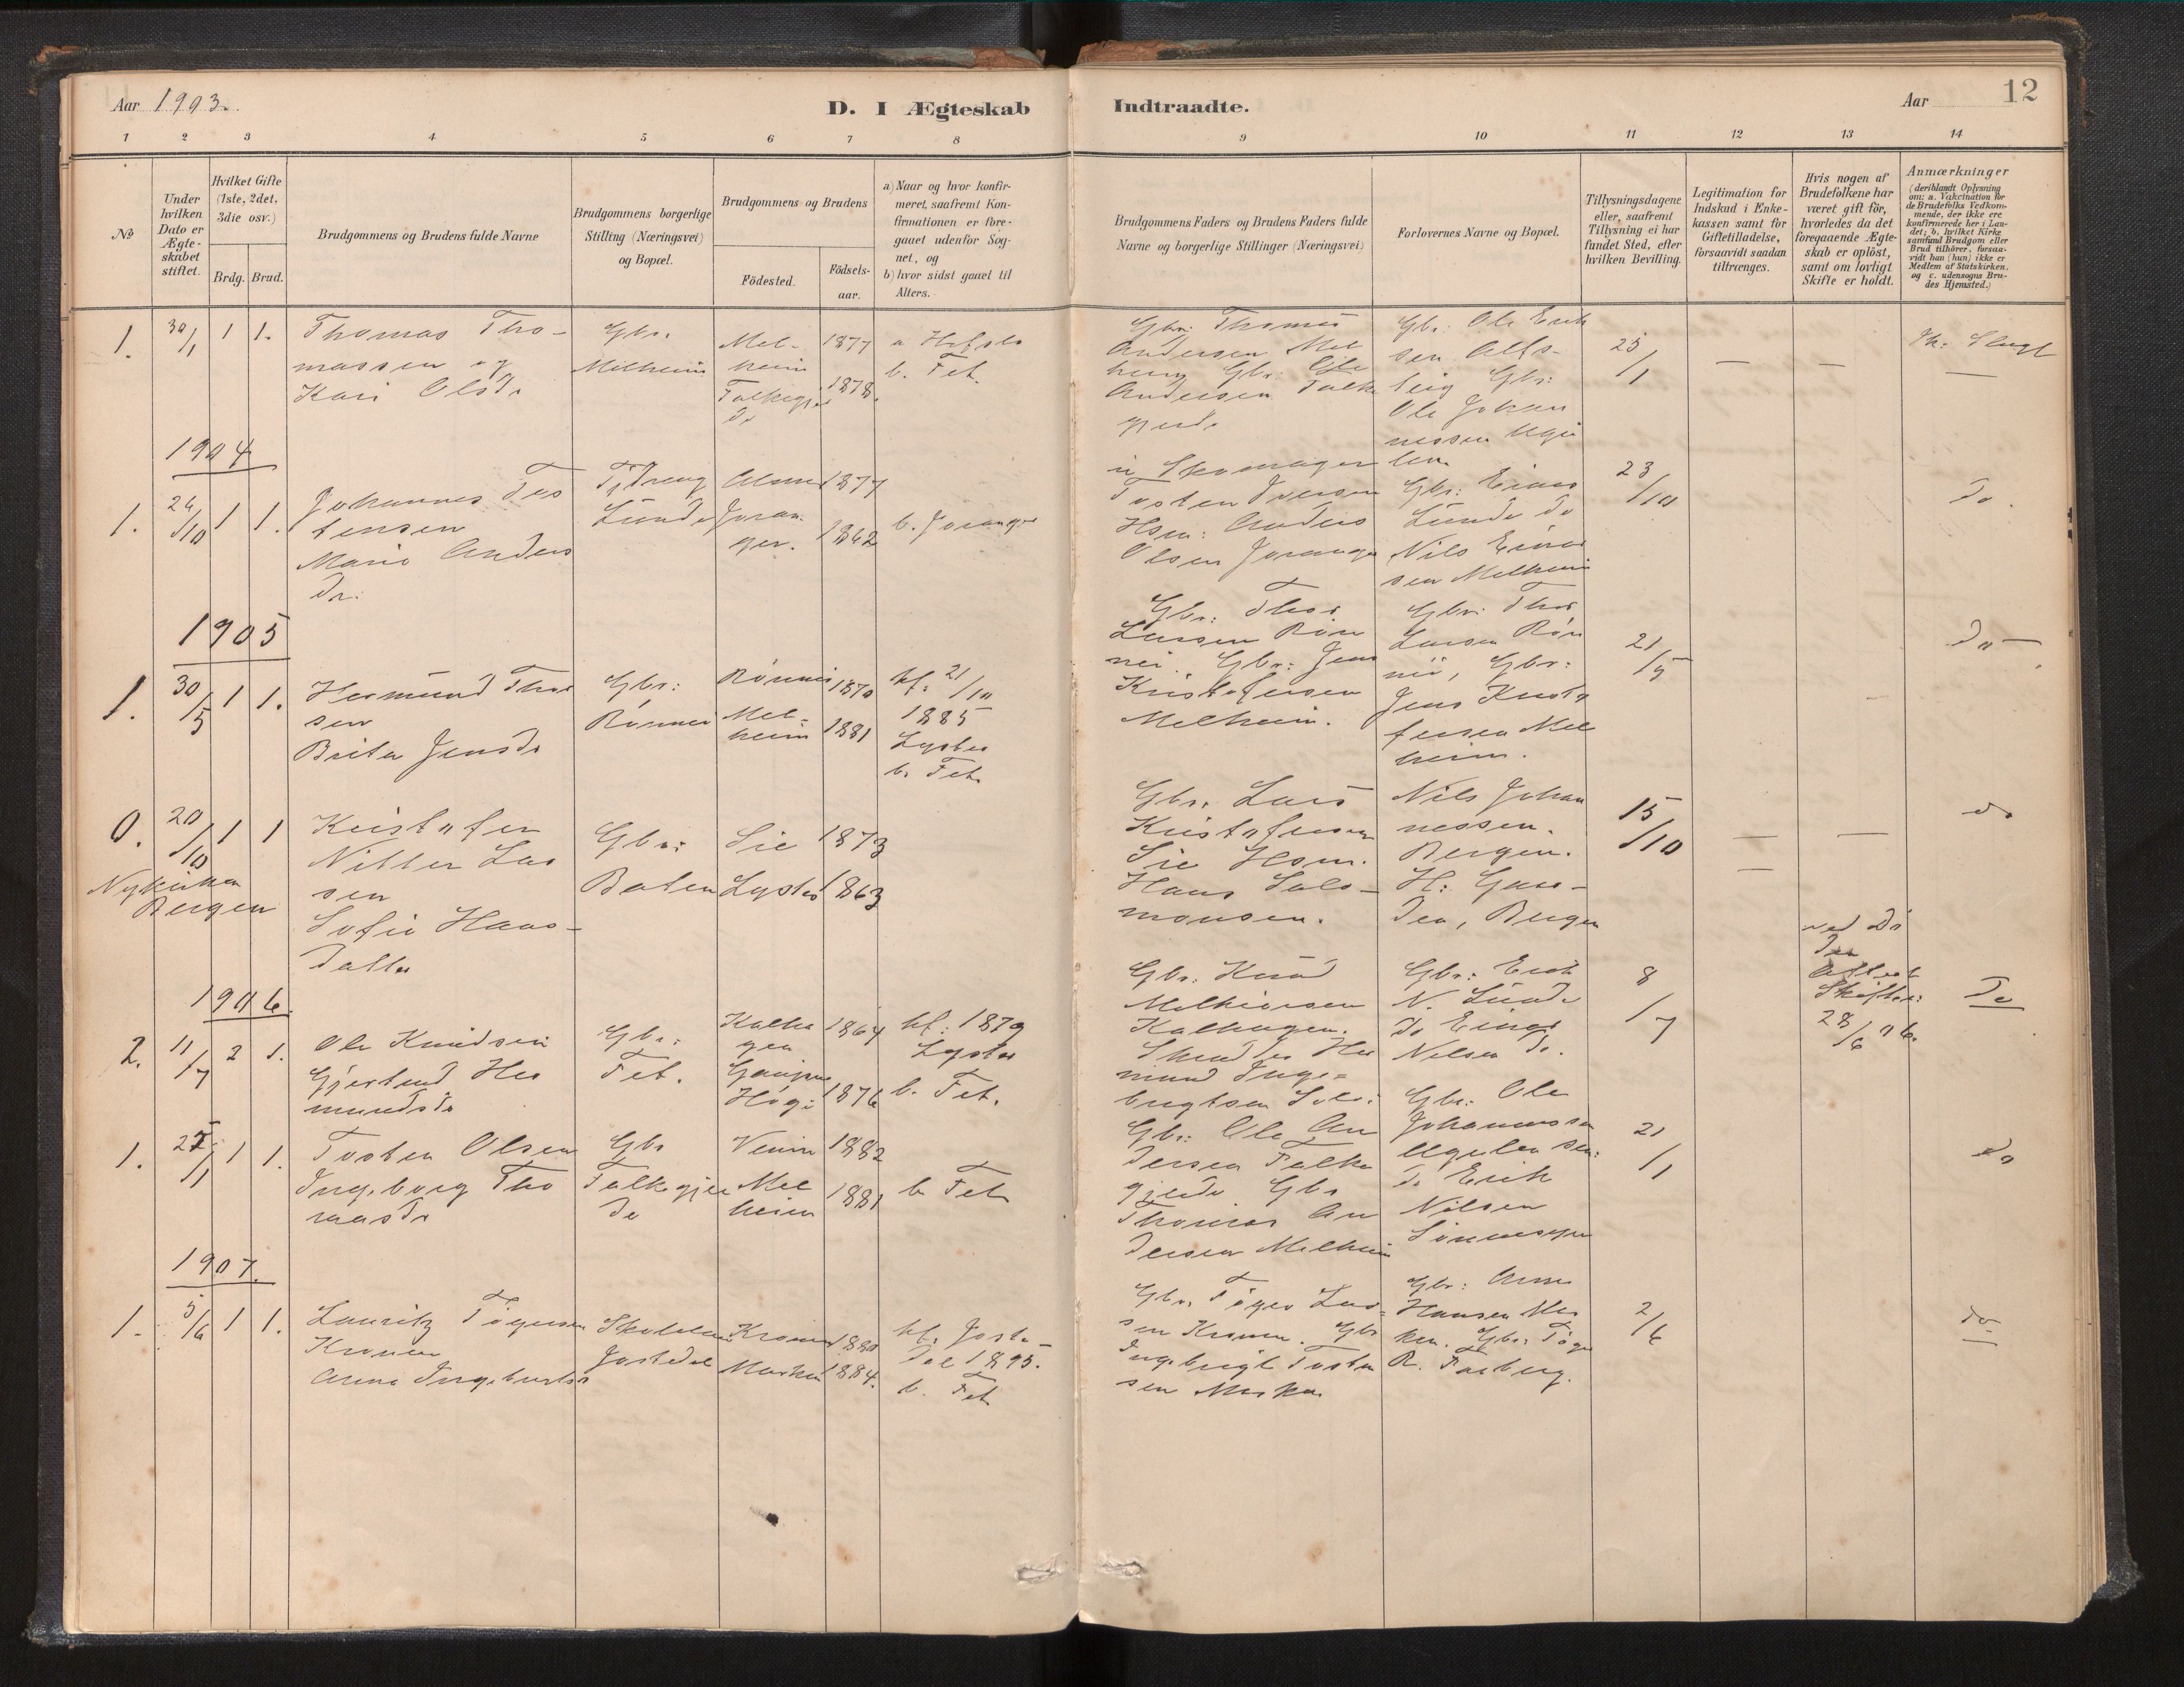 Aar 1903.
D. I Ægteskab
Indtraadte.
Aar
12
1 2 3 4 5 6 7 8
9 10 11 12 13 14
No
Under hvilken Dato er Ægteskabet stiftet.
Hvilket Gifte (1ste, 2det, 3die osv.)
Brdg. Brud.
Brudgommens og Brudens fulde Navne
Brudgommens borgerlige Stilling (Næringsvei) og Bopæl.
Brudgommens og Brudens
Födested.
Födselsaar.
a) Naar og hvor konfirmeret, saafremt Konfirmationen er foregaaet udenfor Sognet, og
b) hvor sidst gaaet til Alters.
Brudgommens Faders og Brudens Faders fulde Navne og borgerlige Stillinger (Næringsvei)
Forlovernes Navne og Bopæl.
Tillysningsdagene eller, saafremt Tillysning ei har fundet Sted, efter hvilken Bevilling.
Legitimation for Indskud i Enkekassen samt for Giftetilladelse, forsaavidt saadan tiltrænges.
Hvis nogen af Brudefolkene har været gift för, hvorledes da det foregaaende Ægteskab er oplöst, samt om lovligt Skifte er holdt.
Anmærkninger
(deriblandt Oplysning om: a. Vakcination for de Brudefolks Vedkommende, der ikke ere konfirmerede her i Landet; b. hvilket Kirkesamfund Brudgom eller Brud tilhörer, forsaavidt han (hun) ikke er Medlem af Statskirken, og c. udensogns Brudes Hjemsted.)
1. 30/1 1 1.
Thomas Tho-
massen og
Kari Olsdr
Gbr.
Melheim
Mel-
heim
Falkegjer
de
1877
1878.
a Hafslo
b. Fet.
Gbr: Thomas
Andersen Mel
heim Gbr: Ole
Andersen Falke
gjerde
Gbr: Ole Erik
sen Alfs-
teig Gbr:
Ole Johan
nessen
25/1
1904
1. 24/10 1 1.
Johannes Tos
tensen
Marie Anders
dr:
Tjdreng
Lunde
Joran
ger.
1877
1862
b. Joranger
Skomager
Tosten Iversen
Hsm: Anders
Olsen Joranger
Gbr: Einar
Lunde do
Nils Einar
sen Melheim
23/10
Do.
1905
1. 30/5 1 1.
Hermund Thor
sen
Brita Jensdr
Gbr:
Rönnei
Rönnei
Mel-
heim
1870
1881
kf. 21/10
1885
Lyster
b. Fet.
Gbr: Thor
Larsen Rön
nei. Gbr: Jens
Kristofersen
Melheim.
Gbr: Thor
Larsen Rön
nei, Gbr:
Jens Kristo
fersen Mel
heim.
21/5
do
0. 20/10 1 1
Nykirken
Bergen
Kristofer
Nitter Lar
sen
Sofie Hans-
datter
Gbr:
Baten
Sie
Lyster
1873
1863
Gbr. Lars
Kristofersen
Sie Hsm.
Hans Salo-
monsen.
Nils Johan
nessen.
Bergen.
H: Gaar-
den, Bergen
15/10
do
1906.
2. 11/7 2 1.
Ole Knudsen
Gjertrud Her
mundsdr
Gbr:
Fet.
Kalha
gen
Gaupne
1864
1876
kf: 1879
Lyster
b. Fet.
Gbr. Knud
Melkiorsen
Kalhagen.
Her
mund Inge-
brigtsen
Gbr: Erik
N. Lunde
do Einar
Nilsen do.
8/7
Attest
28/6 06.
Do
1. 27/1 1 1.
Tosten Olsen
Ingeborg Tho
masdr
Gbr
Falkegjer
de
Mel
heim
1882
1881
b Fet
Gbr: Ole An
dersen Falke
gjerde Gbr
Thomas An
dersen Melheim
Gbr: Ole
Johannessen
do Erik
Nilsen
21/1
do
1907.
1. 5/6 1 1.
Lauritz Tögersen
Kronen
Anna Ingebrigtsdr
Jostedal
Kronen
Marken
1880
1884.
kf. Joste-
dal 1895.
b. Fet
Gbr. Töger Lar-
sen Kronen. Gbr
Ingebrigt Tosten
sen Marken
Gbr: Arne
Hansen Mar
ken. Gbr: Töger
R. Faaberg.
2/6
do